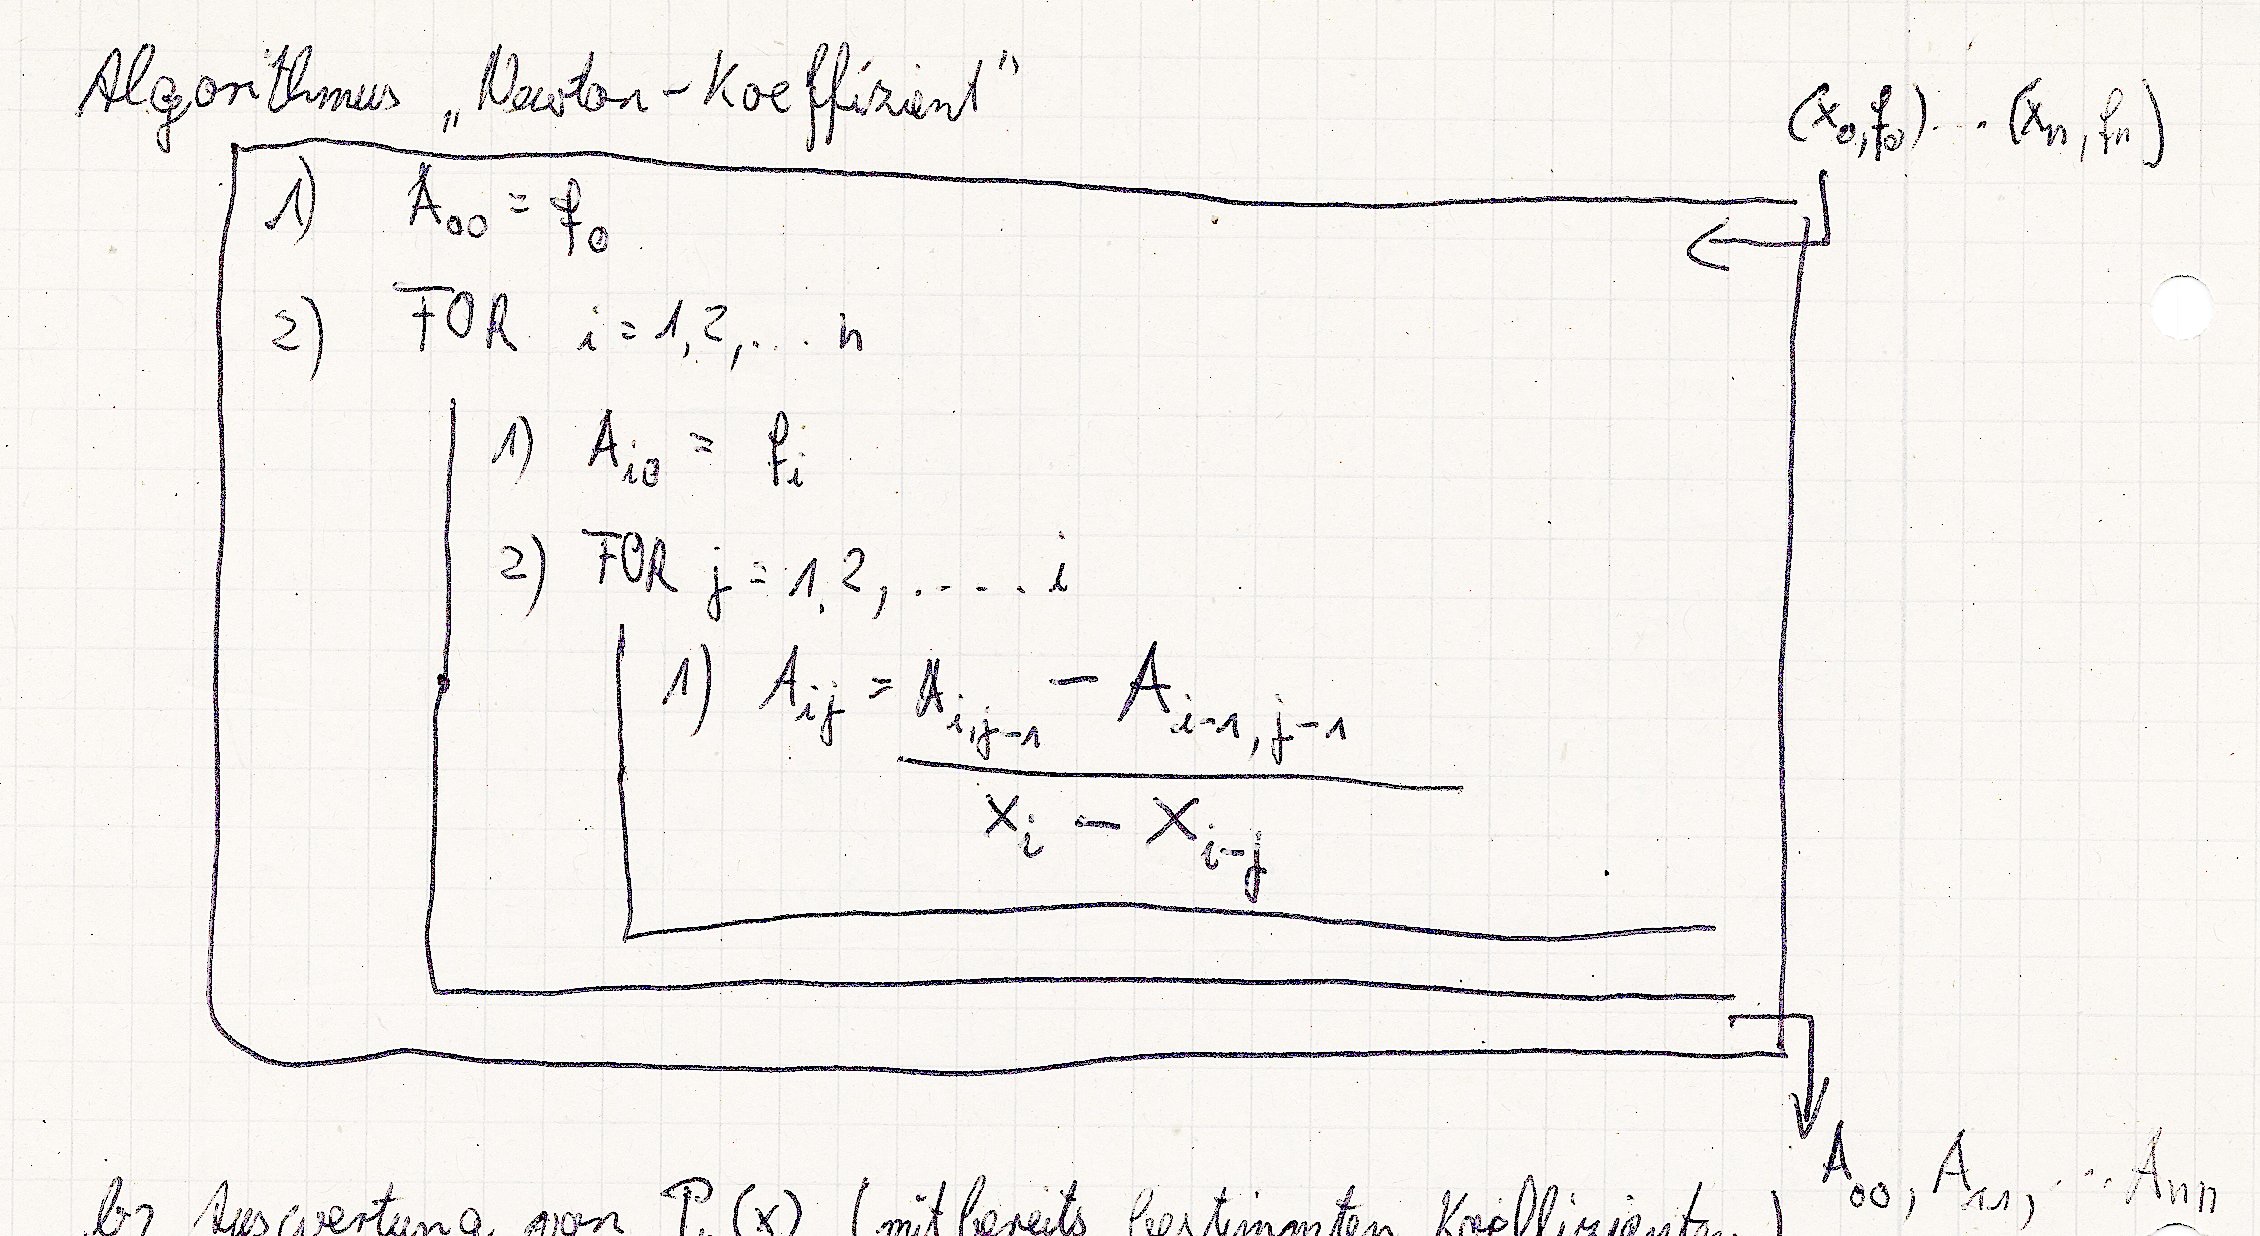 Algorithmus „Newton-Koeffizient"
(x₀,f₀)...(xₙ,fₙ)
1) A₀₀ = f₀
2) FOR i = 1,2,... n
1) Aᵢ₀ = fᵢ
2) FOR j = 1,2,..... i
1) Aᵢⱼ = Aᵢ,ⱼ₋₁ − Aᵢ₋₁,ⱼ₋₁
xᵢ − xᵢ₋ⱼ
A₀₀, A₁₁, ... Aₙₙ
b) Auswertung von Pₙ(x) (mit bereits bestimmten Koeffizienten)